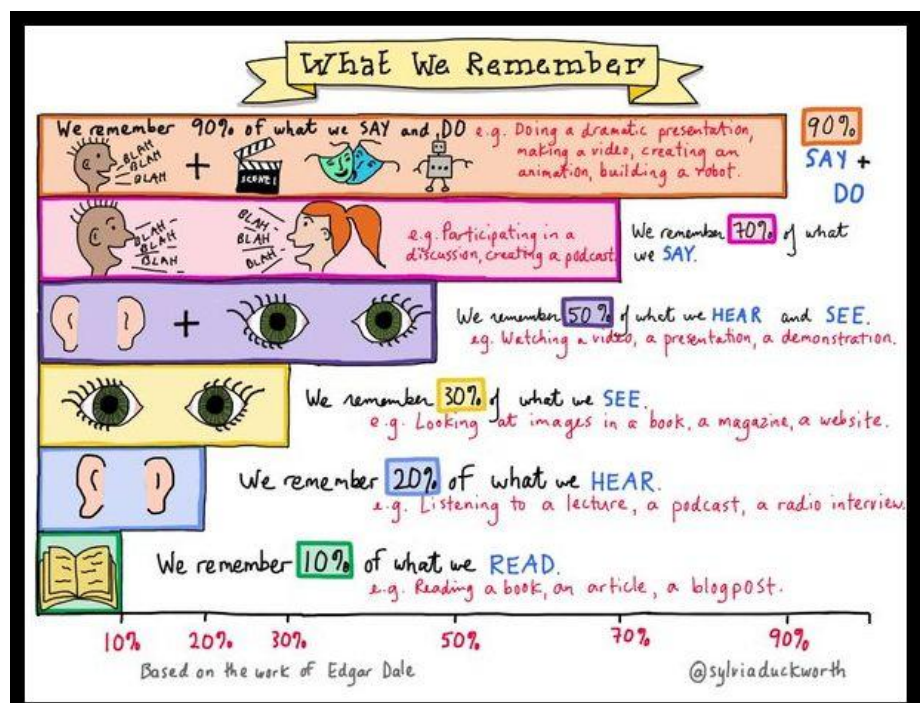 What We Remember
We remember 90% of what we SAY and DO e.g. Doing a dramatic presentation,
making a video, creating an
animation, building a robot.
90%
SAY +
DO
BLAH
BLAH
BLAH
+
SCENE 1
BLAH
BLAH
BLAH
BLAH
BLAH
BLAH
BLAH
e.g. Participating in a
discussion, creating a podcast
We remember 70% of what
we SAY.
+
We remember 50% of what we HEAR and SEE.
eg. Watching a video, a presentation, a demonstration.
We remember 30% of what we SEE.
e.g. Looking at images in a book, a magazine, a website.
We remember 20% of what we HEAR.
e.g. Listening to a lecture, a podcast, a radio interview.
We remember 10% of what we READ.
e.g. Reading a book, an article, a blogpost.
10% 20% 30% 50% 70% 90%
Based on the work of Edgar Dale
@sylviaduckworth